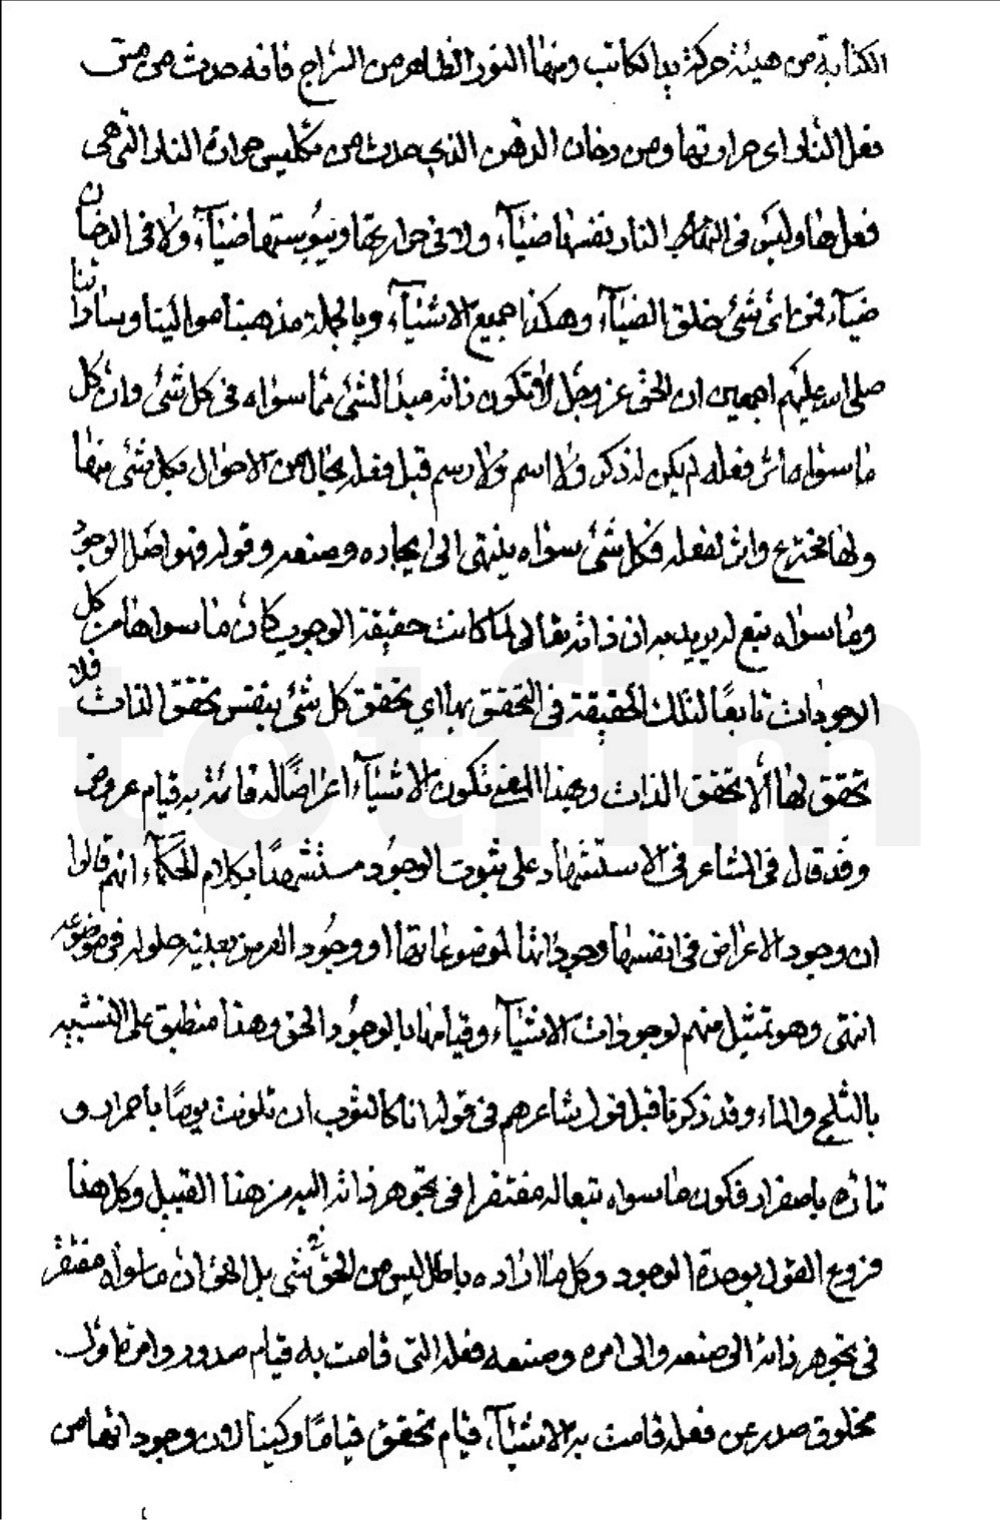 الكتابة من هيئة حركة يد الكاتب ومنها النور الظاهر من السراج فانه حدث من مس
فعل النار اى حرارتها ومن دخان الدهن الذي حدث من تكليس حرارة النار التى هى
فعلها وليس فى النار نفسها ضياء ولا فى حرارتها ويبوستها ضياء ولا فى الدخان
ضياء فمن اى شئ خلق الضياء وهكذا جميع الاشياء وبالجملة مذهبنا موالينا وساداتنا
صلى الله عليهم اجمعين ان الحق عز وجل لا تكون ذاته مبدأ لشئ مما سواه فى كل شئ وان كل
ما سواه اثر فعله لم يكن له ذكر ولا اسم ولا رسم قبل فعله بحال من الاحوال فكل شئ منها
ولها مخترع واثر لفعله فكل شئ سواه ينتهى الى ايجاده وصنعه وقوله فهو اصل الوجود
وما سواه تبع له يريد به ان ذاته تعالى لما كانت حقيقة الوجود كان ما سواها من كل
الوجودات تابعًا لتلك الحقيقة فى التحقق بها اي تحقق كل شئ بنفس تحقق الذات فلا
تحقق لها الا تحقق الذات وبهذا المعنى تكون الاشياء اعراضًا له قائمة به قيام عروض
وقد قال فى المشاعر فى الاستشهاد على ثبوت الوجود مستشهدًا بكلام الحكماء انهم قالوا
ان وجود الاعراض فى انفسها وجوداتها لموضوعاتها او وجود العرض بعينه حلوله فى موضوعه
انتهى وهو تمثيل منهم لوجودات الاشياء وقيامها بالوجود الحق وهذا منطبق على التشبيه
بالثلج والماء وقد ذكرنا قبل قول شاعرهم فى قوله انا كالثوب ان تلونت يومًا باحمرار و
تارة باصفرار فكون ما سواه تبعا له مفتقرا فى تجوهر ذاته اليه من هذا القبيل وكل هذا
فروع القول بوحدة الوجود وكل ما اراده باطل ليس من الحق فى شئ بل الحق ان ما سواه مفتقر
فى تجوهر ذاته الى صنعه والى امره وصنعه فعله التى قامت به قيام صدور وامره اول
مخلوق صدر عن فعله قامت به الاشياء قيام تحقق قيامًا ركنيا لان وجوداتها من
totfim